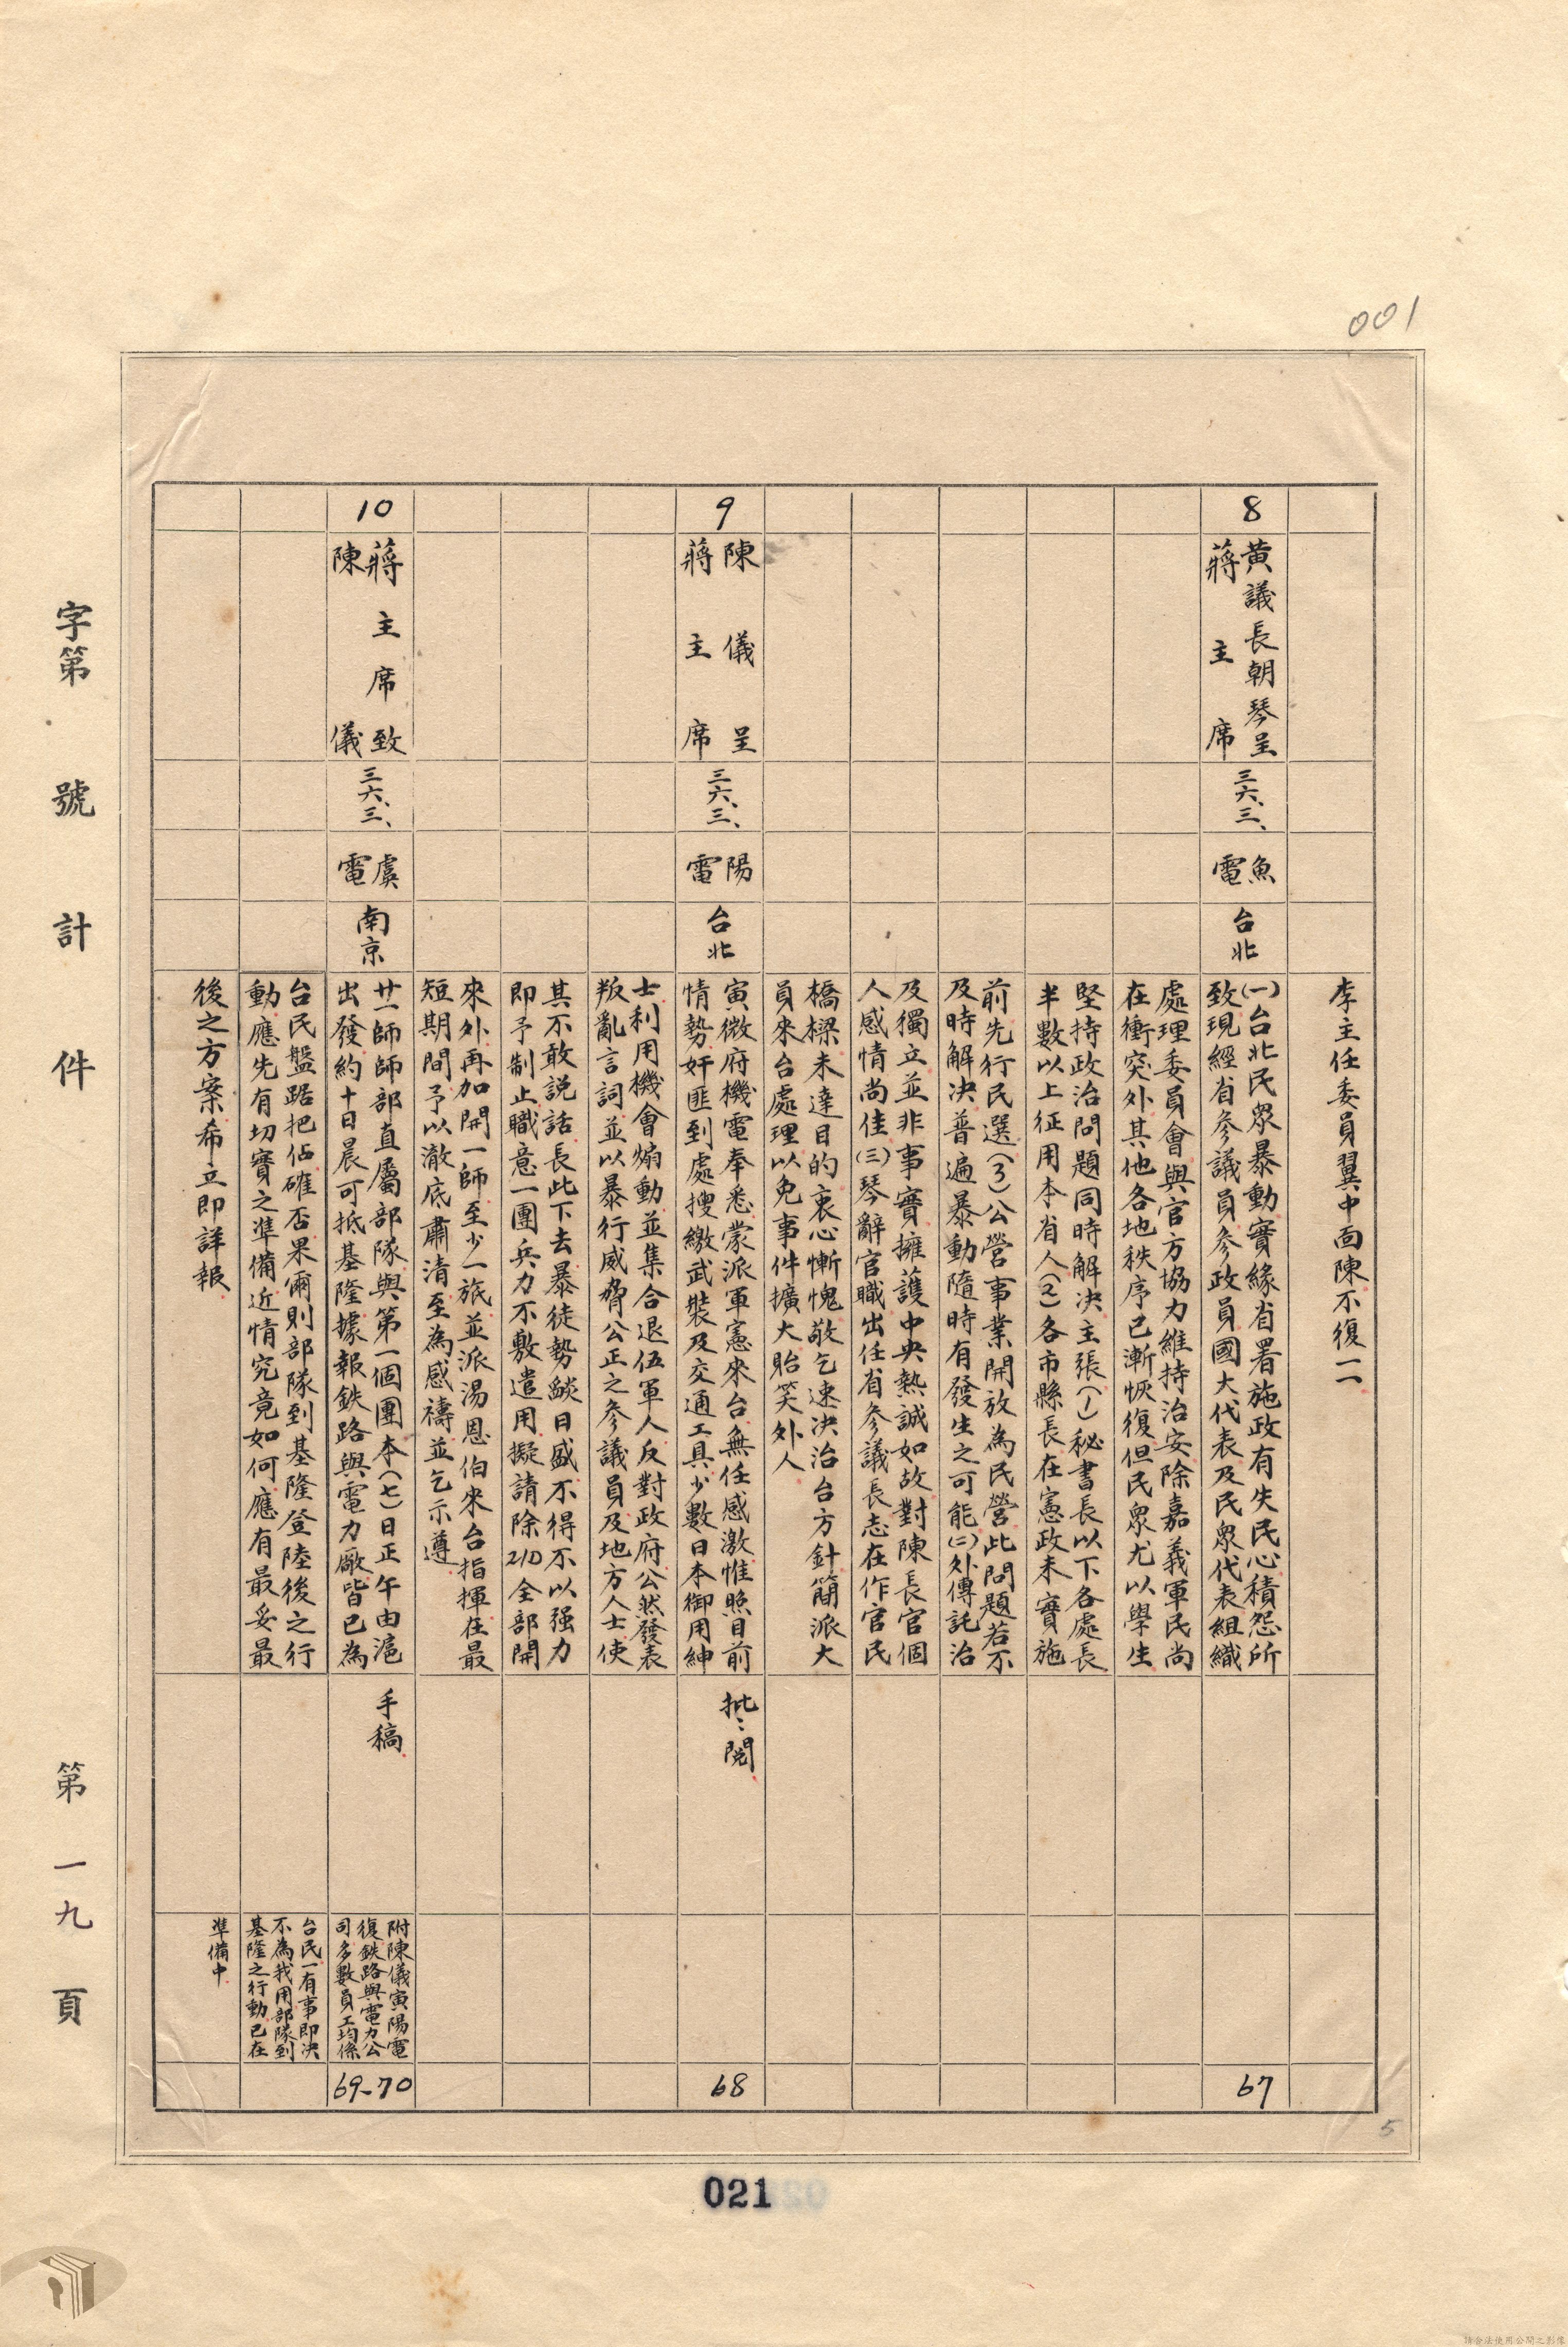 001
李主任委員翼中面陳不復一一
8
黃議長朝琴呈
蔣主席
三六、三、
魚電
台北
(一)台北民眾暴動實緣省署施政有失民心積怨所
致現經省參議員參政員國大代表及民眾代表組織
處理委員會與官方協力維持治安除嘉義軍民尚
在衝突外其他各地秩序已漸恢復但民眾尤以學生
堅持政治問題同時解決主張(1)秘書長以下各處長
半數以上征用本省人(2)各市縣長在憲政未實施
前先行民選(3)公營事業開放為民營此問題若不
及時解決普遍暴動隨時有發生之可能(二)外傳託治
及獨立並非事實擁護中央熱誠如故對陳長官個
人感情尚佳(三)琴辭官職出任省參議長志在作官民
橋樑未達目的衷心慚愧敬乞速決治台方針簡派大
員來台處理以免事件擴大貽笑外人
67
9
陳儀呈
蔣主席
三六、三、
陽電
台北
寅微府機電奉悉蒙派軍憲來台無任感激惟照目前
情勢奸匪到處搜繳武裝及交通工具少數日本御用紳
士利用機會煽動並集合退伍軍人反對政府公然發表
叛亂言詞並以暴行威脅公正之參議員及地方人士使
其不敢説話長此下去暴徒勢燄日盛不得不以强力
即予制止職意一團兵力不敷遣用擬請除21D全部開
來外再加開一師至少一旅並派湯恩伯來台指揮在最
短期間予以澈底肅清至為感禱並乞示遵
批:閱
68
10
蔣主席致
陳儀
三六、三、
虞電
南京
廿一師師部直屬部隊與第一個團本(七)日正午由滬
出發約十日晨可抵基隆據報鉄路與電力廠皆已為
台民盤踞把佔確否果爾則部隊到基隆登陸後之行
動應先有切實之準備近情究竟如何應有最妥最
後之方案希立即詳報
手稿
附陳儀寅陽電
復鉄路與電力公
司多數員工均係
台民一有事即決
不為我用部隊到
基隆之行動已在
準備中
69-70
字第 號 計 件 第一九頁
5
021
請合法使用公開之影像